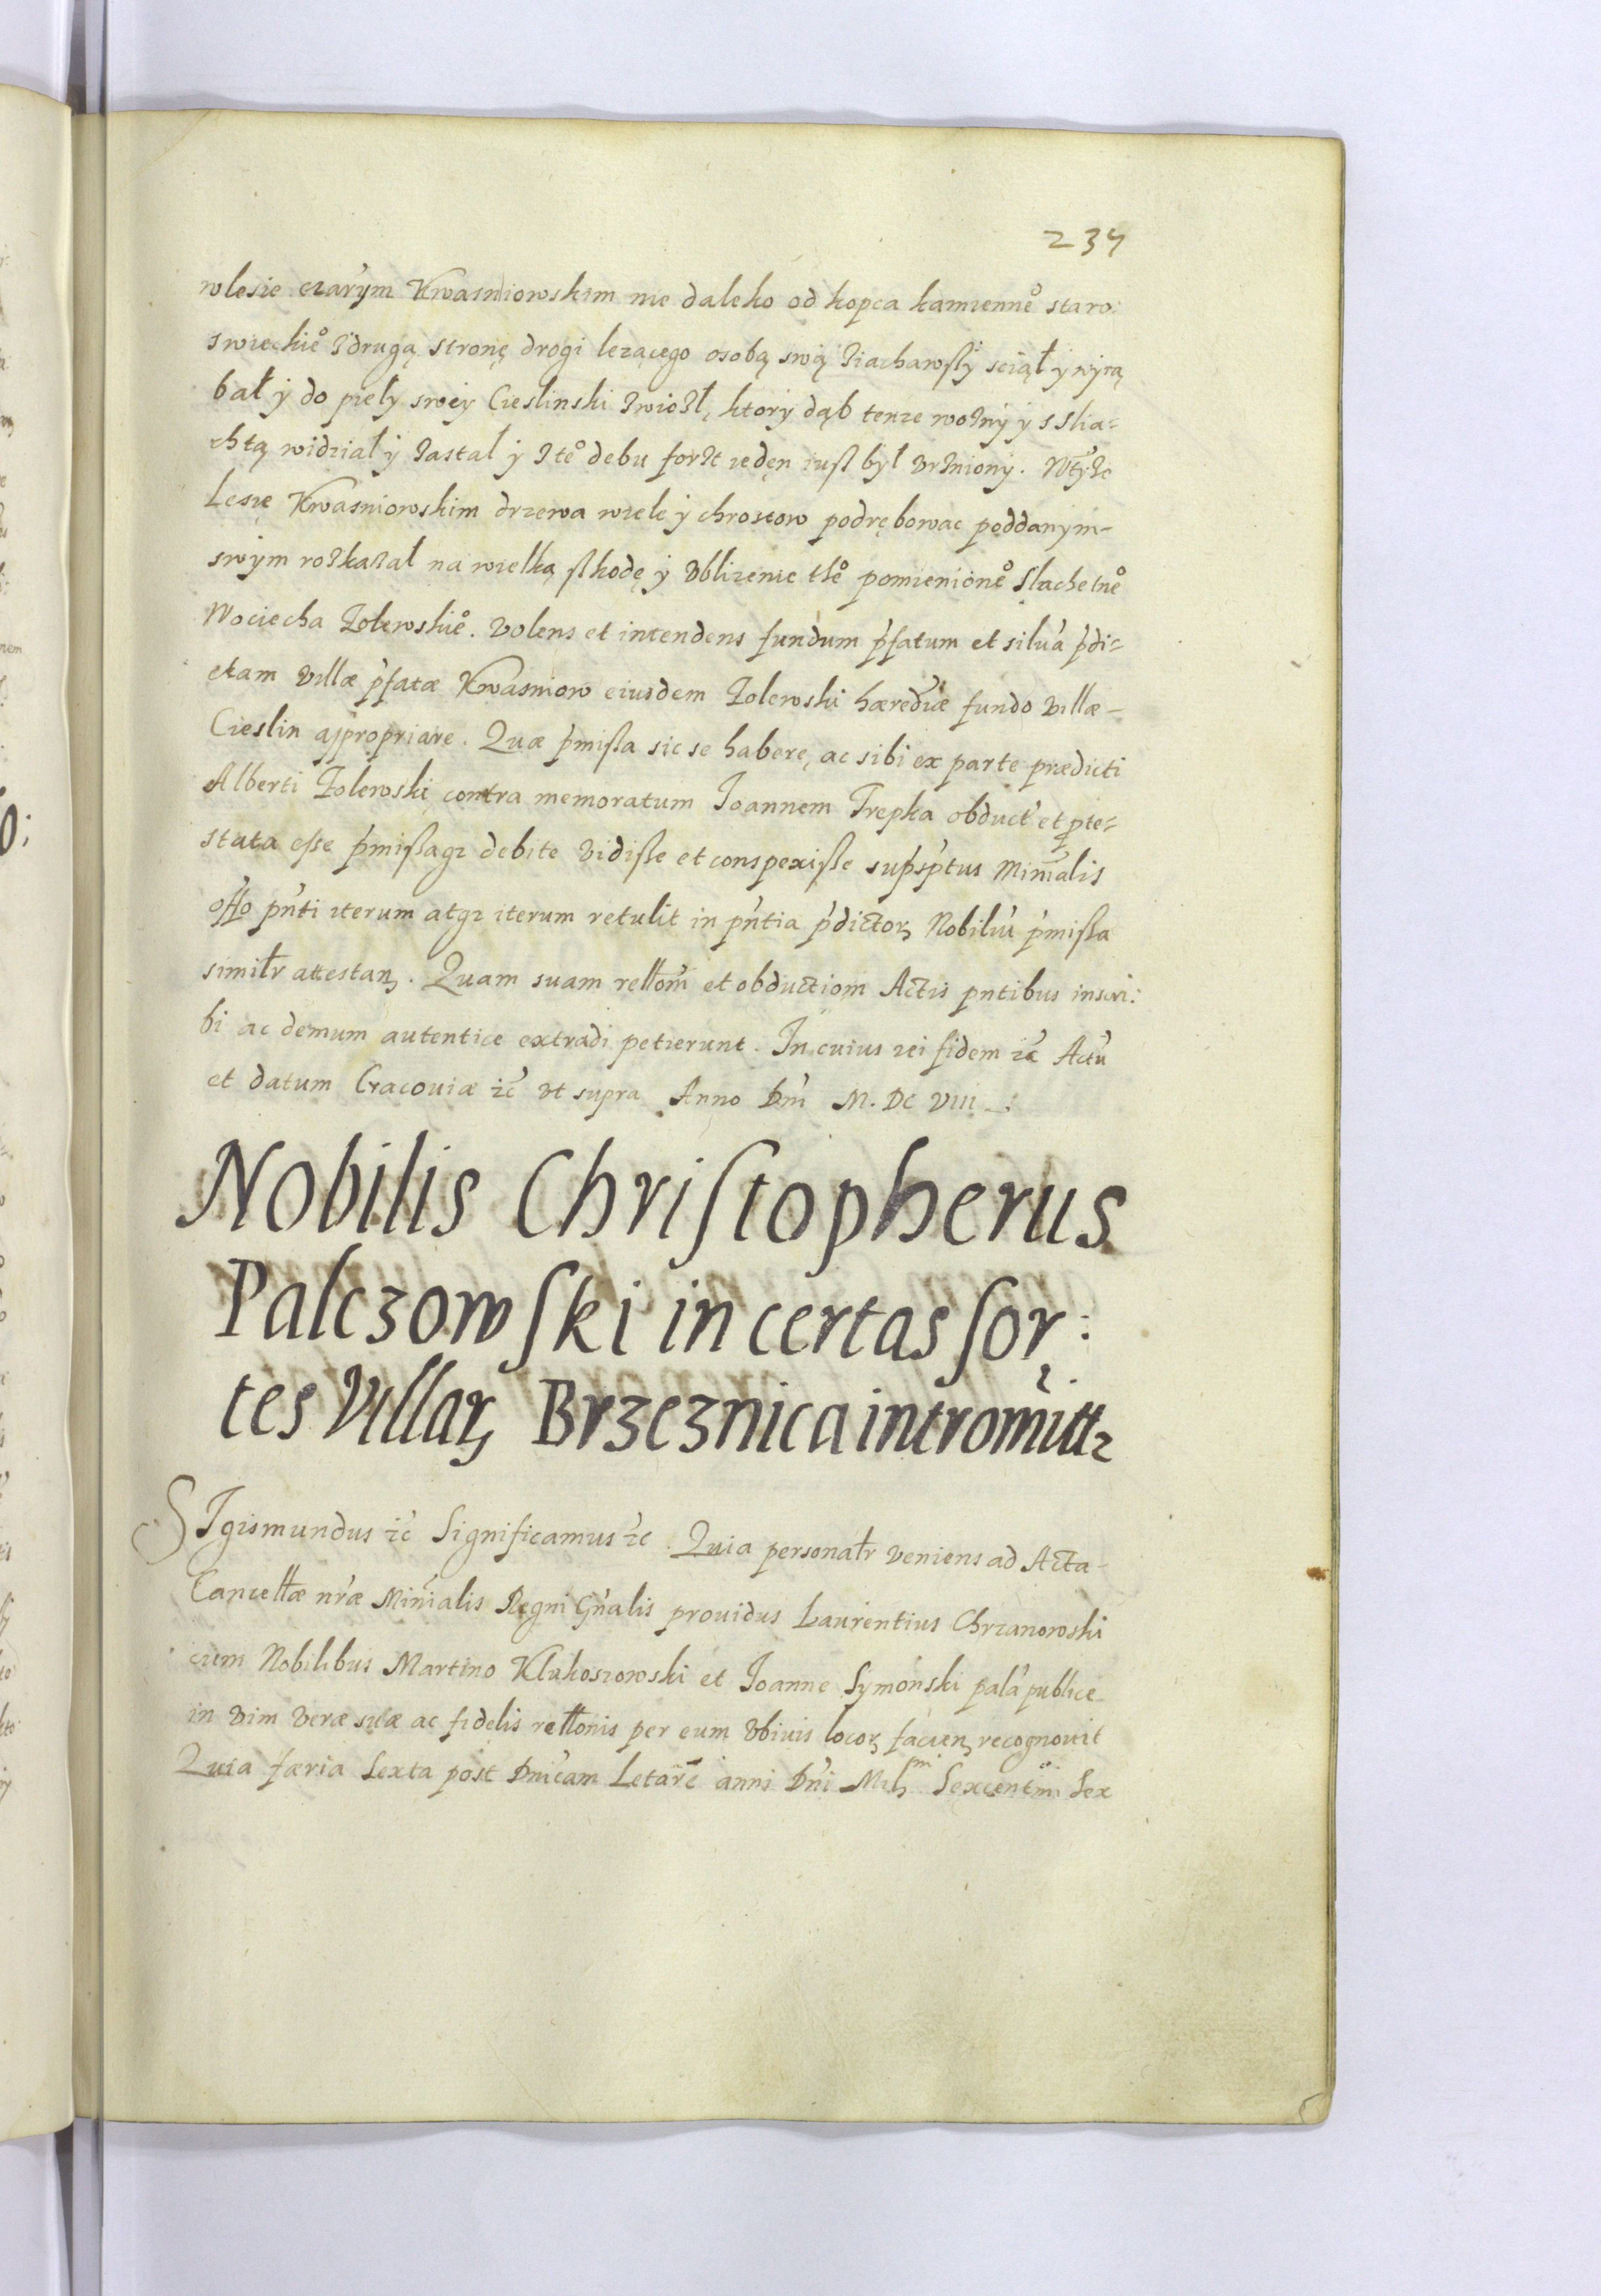 234
wlesie czarnym Kwasniowskim nie daleko od kopca kamienne° staro:
swieckie° zdrugą stronę drogi lezącego osobą swą ziachawszÿ sciął ÿ wÿrą
bał ÿ do piełÿ sweÿ Cieslinski zwiozł, ktorÿ dąb tenze woznÿ ÿ s slia=
chtą widział ÿ zastał ÿ z te° debu forszt ieden iusz bÿł vrznionÿ. Wtÿze
Lesie Kwasniowskim drzewa wiele ÿ chrostow podrębowac poddanÿm-
swÿm roskazał na wielką szkodę ÿ vblizenie the° pomienione° Slachetne°
Wociecha Zolewskie°. Volens et intendens fundum p̃fatum et silua᷉ p̃di=
ctam villæ p̃fatæ Kwasniow eiusdem Zolewski hæredit̃æ fundo villæ-
Cieslin appropriare. Quæ p̃missa sic se habere, ac sibi ex parte prædicti
Alberti Zolewski contra memoratum Joannem Trepka obduct̃ et p̱te=
stata esse p̃missaqꝫ debite vidisse et conspexisse sup̃sp̃tus Min̄ialis
offo p̃nti iterum atqꝫ iterum retulit in p̃ntia p̃dictoꝝ Nobiliũ p̃missa
similr̃ attestan̄. Quam suam rellom̃ et obductiom̃ Actis pntibus inscri:
bi ac demum autentice extradi petierunt. In cuius rei fidem ꝛc̃ Actũ
et datum Cracoviæ ꝛc̃ vt supra Anno Dñi M. DC VIII _:
Nobilis Chriſtopherus
Palczowſki in certas ſor:
tes Villaꝝ Brzeznica intromittꝛ
SIgismundus ꝛc̃ Significamus ꝛc̃. Quia personalr̃ veniens ad Acta-
Cancellæ nr̃æ Min̄ialis Regni Gñalis prouidus Laurentius Chrzanowski
cum Nobilibus Martino Klukoszowski et Joanne Symonski palã publice
in vim veræ suæ ac fidelis rellonis per eum vbiuis locoꝝ facien̄ recognouit
Quia færia Sexta post Dñicam Letare anni Dñi Millmi Sexcentmi Sex